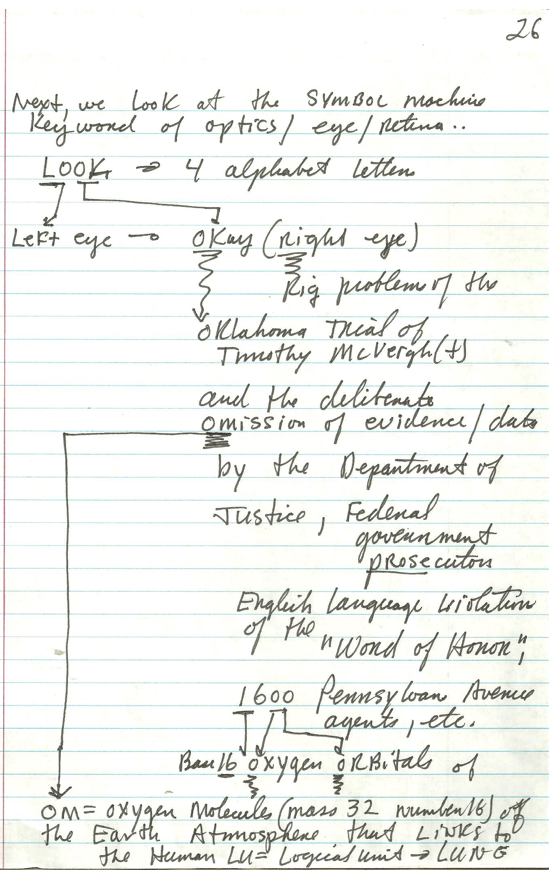 26
Next, we look at the SYMBOL machine
Keyword of optics/ eye/retina..
LOOK → 4 alphabet letters
Left eye → OKay (right eye)
Rig problem of the
Oklahoma Trial of
Timothy McVeigh(t)
and the deliberate
omission of evidence/data
by the Department of
Justice, Federal
government
prosecutors
English Language violation
of the "Word of Honor",
1600 Pennsylvan Avenue
agents, etc.
Bas 16 oxygen ORBitals of
OM = oxygen Molecules (mass 32 number 16) of
the Earth Atmosphere that LINKS to
the Human LU = Logical unit → LUNG